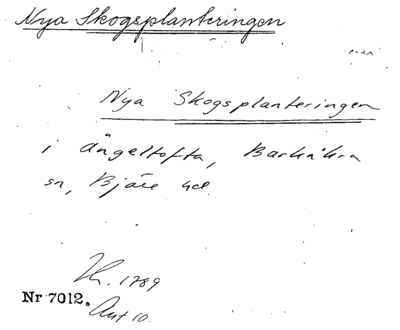 Nya Skogsplanteringen
Nya Skogsplanteringen
i Ängeltofta, Barkåkra
sn, Bjäre hd.
Th. 1789
Nr 7012.
Ant 10.